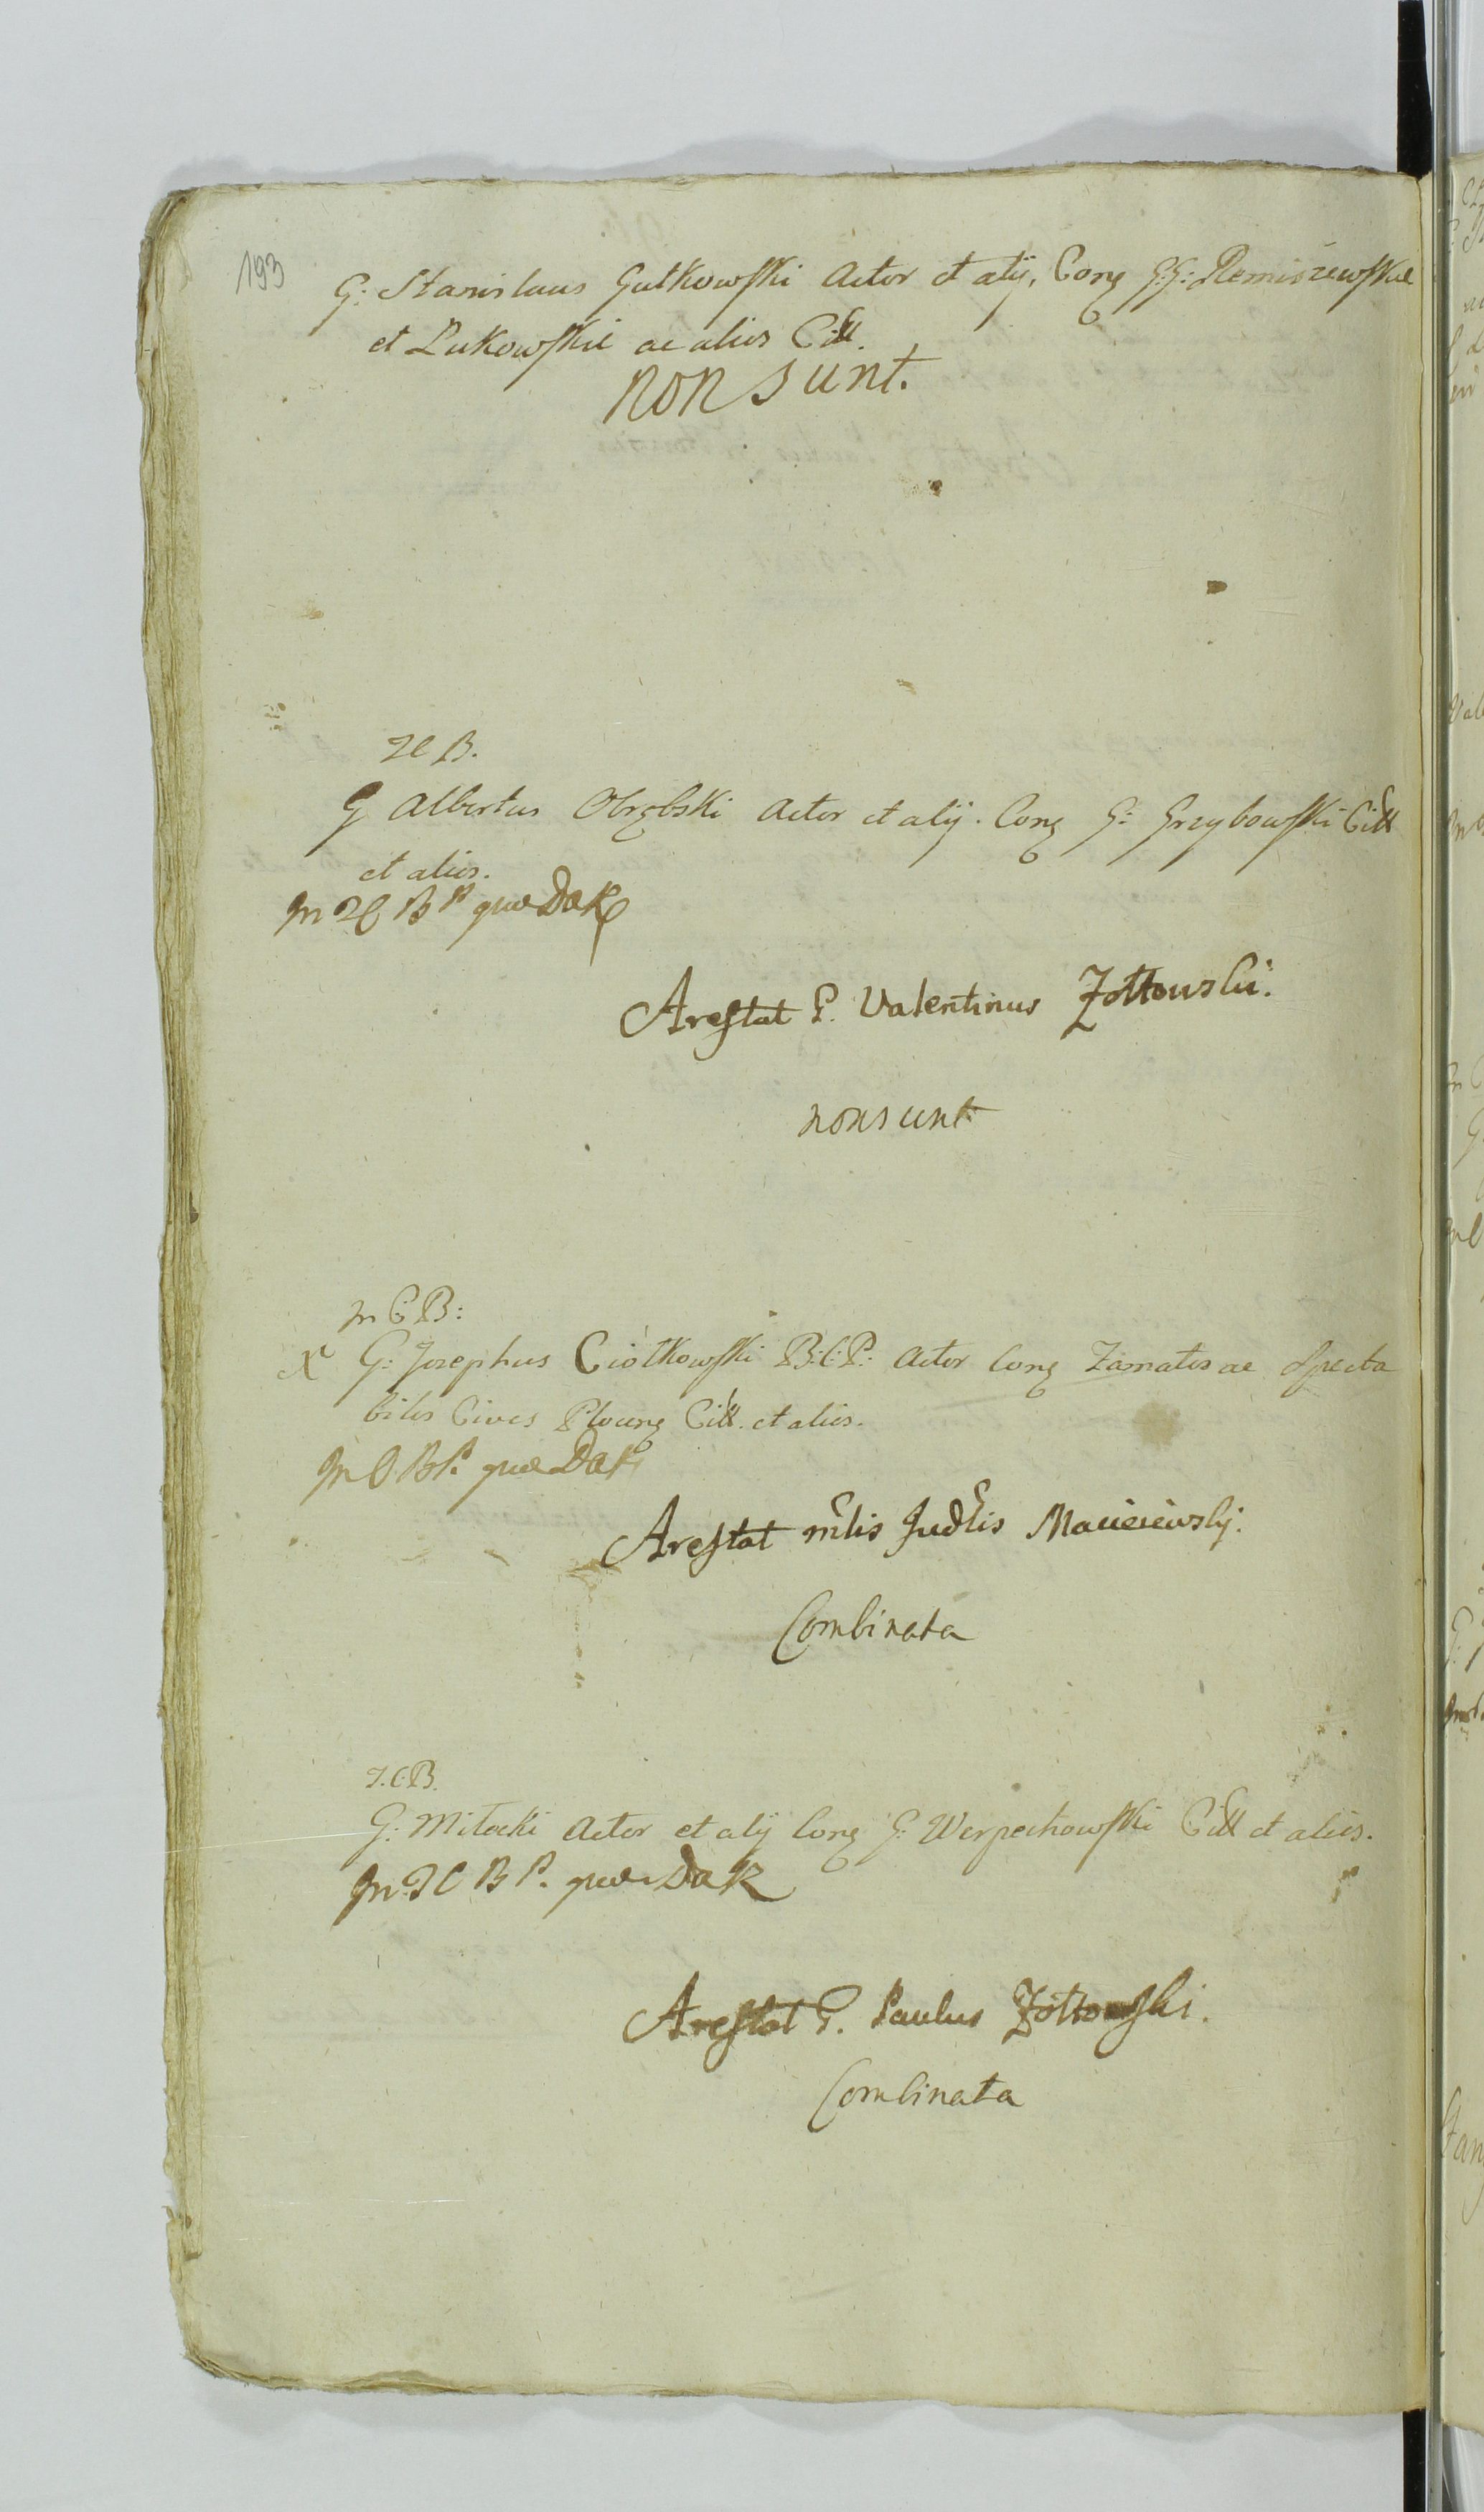 193
G: Stanislaus Gutkowski Actor et alij, Conq G:G: Remiszewskie
et Łukowskie ac alios Citt.
non sunt.
JC B.
G Albertus Obrębski Actor et alij. Conq G: Grzybowski Citt
et alios.
In JC B P quæ Dak
Arestat G. Valentinus Żołtowski.
non sunt
In C B:
X G: Josephus Ciołkowski B:C:P: Actor Conq Zamatos ac Specta
biles Cives Plocenq Citt. et alios.
In C B P. quæ Dak
Arestat mlis Judlis Macieiewskj.
Combinata
J.C.B.
G: Miłocki Actor et alij Conq G: Wierpechowski Citt et alios.
In JC B P. quæ Dak
Arestat G. Paulus Żołtowski.
Combinata